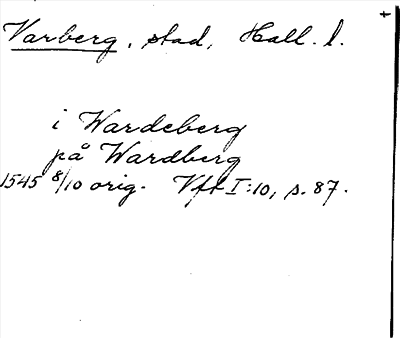 Varberg, stad, Hall. l.
i Wardeberg
på Wardberg
1545 8/10 orig. Vfl I:10, s. 87.